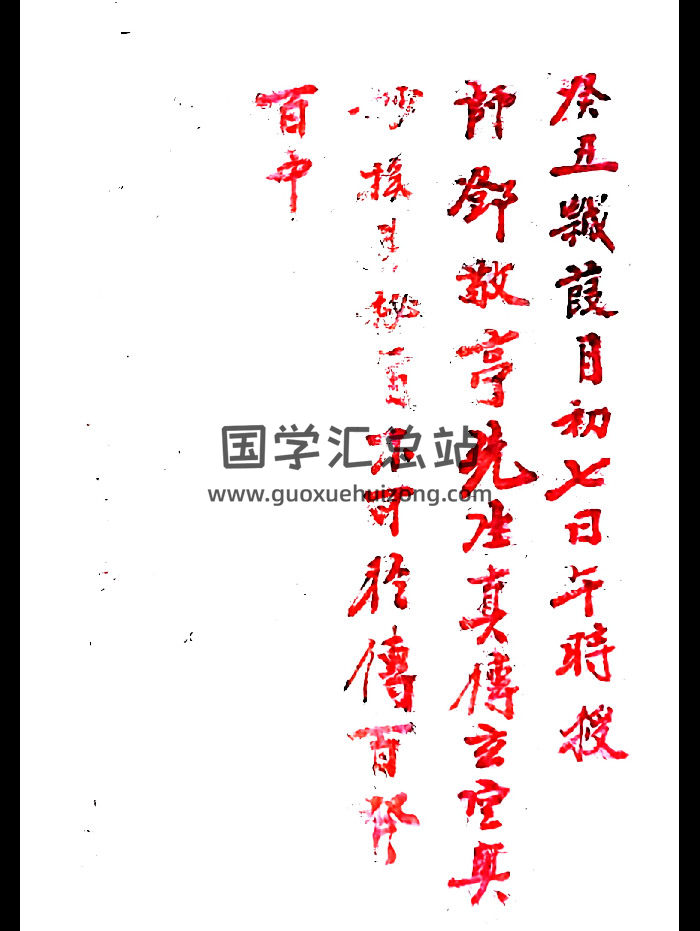 癸丑歲葭月初七日午時授
師鄧敬亭先生真傳玄空真
妙授其秘百不可於傳百發
百中
国学汇总站
www.guoxuehuizong.com